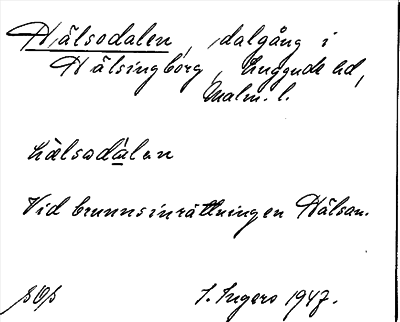 Hälsodalen, dalgång i
Hälsingborg, Luggude hd,
Malm. l.
hälsodàlen
Vid brunnsinrättningen Hälsan.
S. Ingers 1947.